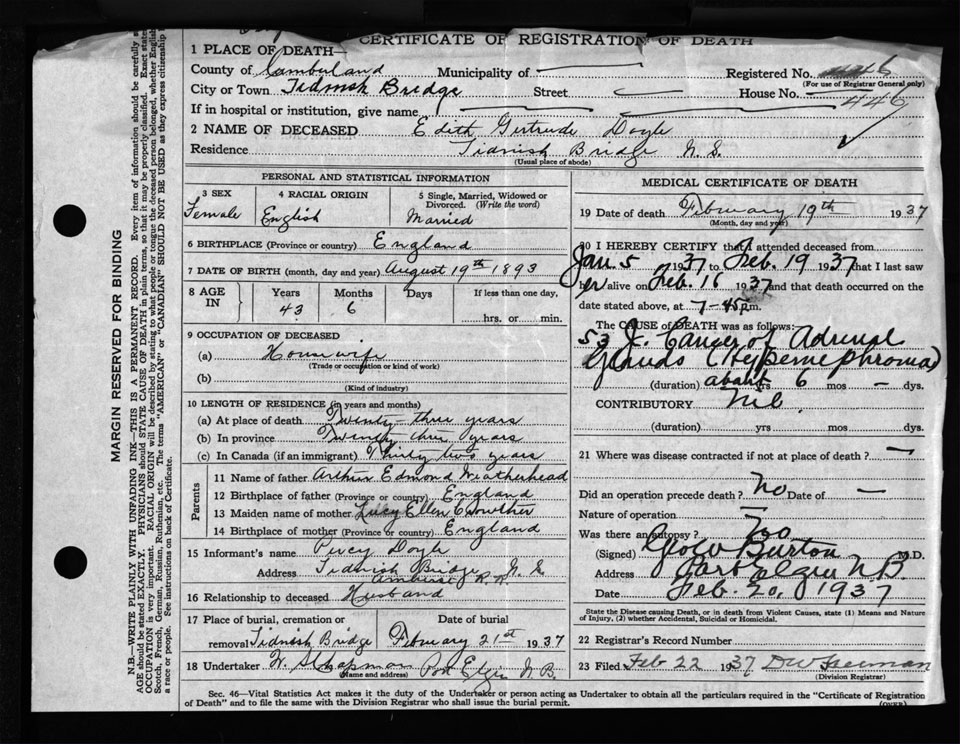 CERTIFICATE OF REGISTRATION OF DEATH
MARGIN RESERVED FOR BINDING
N.B.—WRITE PLAINLY WITH UNFADING INK—THIS IS A PERMANENT RECORD. Every item of information should be carefully
AGE should be stated EXACTLY. PHYSICIANS should STATE CAUSE OF DEATH in plain terms, so that it may be properly classified. Exact
OCCUPATION is very important. RACIAL ORIGIN will be described by stating to what people or tongue the deceased person belonged, whether English,
Scotch, French, German, Russian, Ruthenian, etc. The terms "AMERICAN" or "CANADIAN" SHOULD NOT BE USED as they express citizenship
a race or people. See instructions on back of Certificate.
1 PLACE OF DEATH—
County of Cumberland Municipality of — Registered No.
(For use of Registrar General only)
City or Town Tidnish Bridge Street — House No. —
446
If in hospital or institution, give name
2 NAME OF DECEASED Edith Gertrude Doyle
Residence Tidnish Bridge N. S.
(Usual place of abode)
PERSONAL AND STATISTICAL INFORMATION
3 SEX Female
4 RACIAL ORIGIN English
5 Single, Married, Widowed or Divorced. (Write the word) Married
6 BIRTHPLACE (Province or country) England
7 DATE OF BIRTH (month, day and year) August 19th 1893
8 AGE IN Years 43 Months 6 Days If less than one day, ...... hrs. or ...... min.
9 OCCUPATION OF DECEASED
(a) Housewife
(Trade or occupation or kind of work)
(b)
(Kind of industry)
10 LENGTH OF RESIDENCE (in years and months)
(a) At place of death Twenty-three years
(b) In province Twenty three years
(c) In Canada (if an immigrant) Thirty two years
Parents
11 Name of father Arthur Edmond Weatherhead
12 Birthplace of father (Province or country) England
13 Maiden name of mother Lucy Ellen Crowther
14 Birthplace of mother (Province or country) England
15 Informant's name Percy Doyle
Address Tidnish Bridge N. S.
Amherst R. R.
16 Relationship to deceased Husband
17 Place of burial, cremation or removal Tidnish Bridge
Date of burial February 21st 1937
18 Undertaker W. S. Chapman Port Elgin N. B.
(Name and address)
MEDICAL CERTIFICATE OF DEATH
19 Date of death February 19th 1937
(Month, day and year)
20 I HEREBY CERTIFY that I attended deceased from
Jan. 5 1937 to Feb. 19 1937 that I last saw
her alive on Feb. 16 1937 and that death occurred on the
date stated above, at 7-45 p.m.
The CAUSE of DEATH was as follows:
53 J. Cancer of Adrenal
Glands (Hypernephroma)
(duration) about yrs 6 mos — dys.
CONTRIBUTORY Nil.
(duration) yrs mos dys.
21 Where was disease contracted if not at place of death? —
Did an operation precede death? No Date of —
Nature of operation —
Was there an autopsy? no
(Signed) Geo W Burton M.D.
Address Port Elgin N.B.
Date Feb. 20, 1937
State the Disease causing Death, or in death from Violent Causes, state (1) Means and Nature
of Injury, (2) whether Accidental, Suicidal or Homicidal.
22 Registrar's Record Number
23 Filed Feb 22 1937 D W Freeman
(Division Registrar)
Sec. 46—Vital Statistics Act makes it the duty of the Undertaker or person acting as Undertaker to obtain all the particulars required in the "Certificate of Registration
of Death" and to file the same with the Division Registrar who shall issue the burial permit.
(OVER)